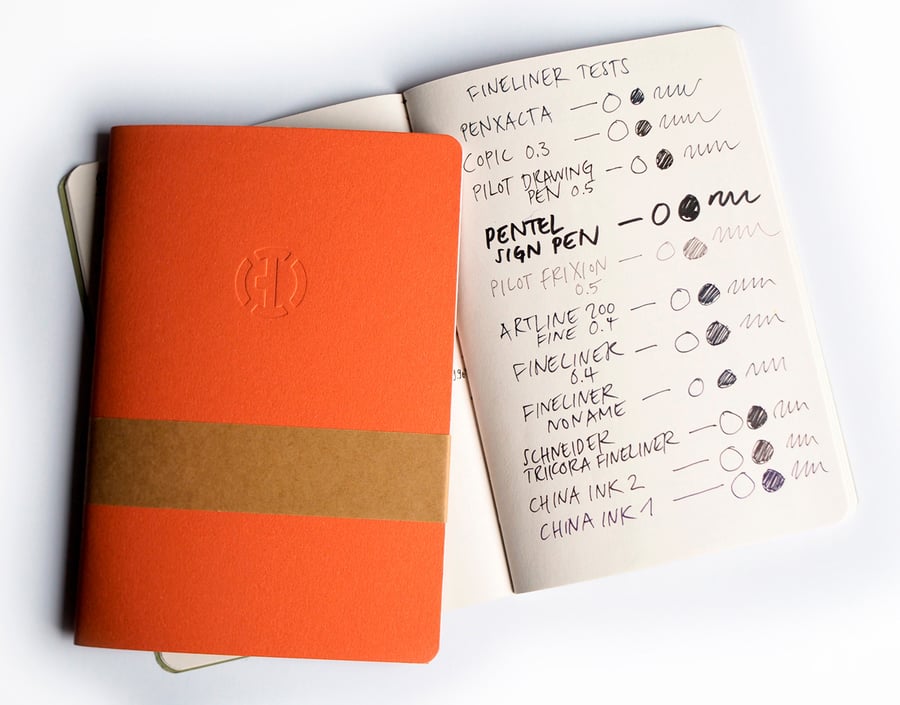 FINELINER TESTS
PENXACTA
COPIC 0.3
PILOT DRAWING
PEN 0.5
PENTEL
SIGN PEN
PILOT FRIXION
0.5
ARTLINE 200
FINE 0.4
FINELINER
0.4
FINELINER
NONAME
SCHNEIDER
TRICORA FINELINER
CHINA INK 2
CHINA INK 1